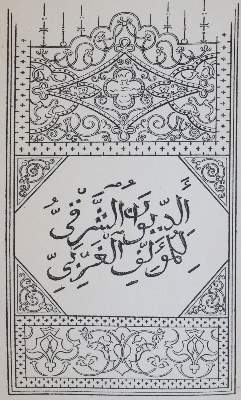 ألدّيوان الشّرقيُّ
للمؤلّف الغربيّ